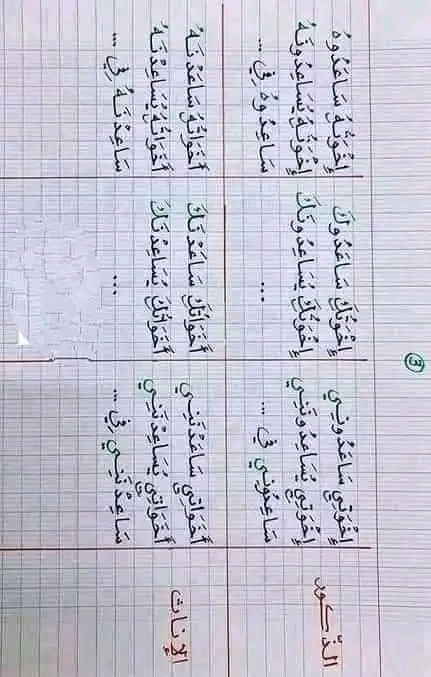 ③
الذُّكُور
إِخْوَتِي سَاعَدُونِي
إِخْوَتِي يُسَاعِدُونَنِي
سَاعِدُونِي فِي ...
إِخْوَتُكَ سَاعَدُوكَ
إِخْوَتُكَ يُسَاعِدُونَكَ
...
إِخْوَتُهُ سَاعَدُوهُ
إِخْوَتُهُ يُسَاعِدُونَهُ
سَاعِدُوهُ فِي ...
الإِنَاث
أَخَوَاتِي سَاعَدْنَنِي
أَخَوَاتِي يُسَاعِدْنَنِي
سَاعِدْنَنِي فِي ...
أَخَوَاتُكَ سَاعَدْنَكَ
أَخَوَاتُكَ يُسَاعِدْنَكَ
...
أَخَوَاتُهُ سَاعَدْنَهُ
أَخَوَاتُهُ يُسَاعِدْنَهُ
سَاعِدْنَهُ فِي ...